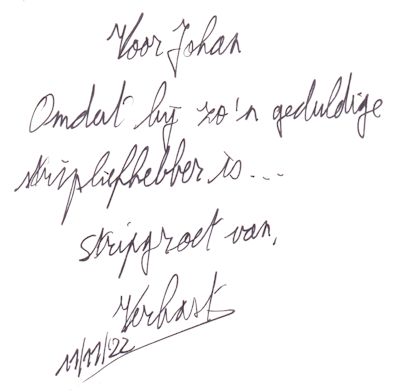 Voor Johan
Omdat hij zo'n geduldige
stripliefhebber is...
stripgroet van,
Verhast
11/11/22